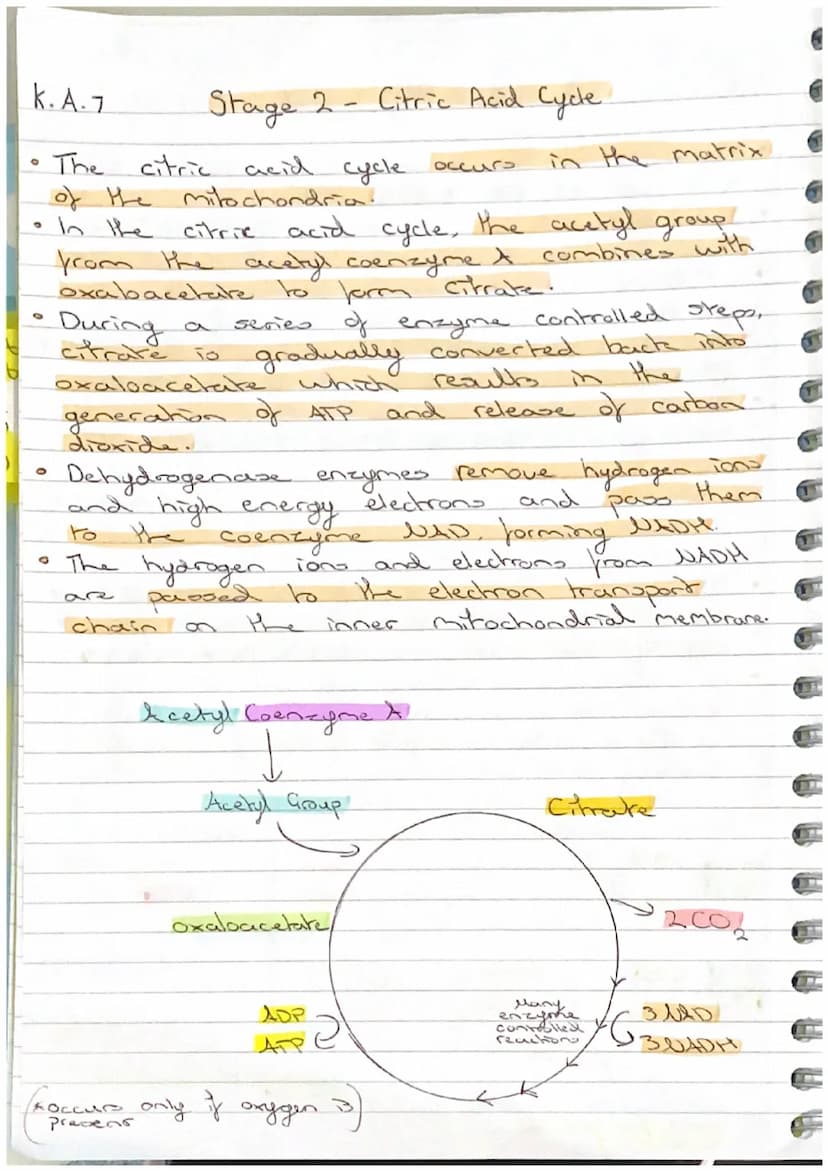 K.A.7 Stage 2 - Citric Acid Cycle
• The citric acid cycle occurs in the matrix
of the mitochondria.
• In the citric acid cycle, the acetyl group
from the acetyl coenzyme A combines with
oxaloacetate to form citrate.
• During a series of enzyme controlled steps,
citrate is gradually converted back into
oxaloacetate which results in the
generation of ATP and release of carbon
dioxide.
• Dehydrogenase enzymes remove hydrogen ions
and high energy electrons and pass them
to the coenzyme NAD, forming NADH.
• The hydrogen ions and electrons from NADH
are passed to the electron transport
chain on the inner mitochondrial membrane.
Acetyl Coenzyme A
Acetyl Group
Citrate
oxaloacetate
2CO2
ADP
ATP
Many
enzyme
controlled
reactions
3NAD
3NADH
(*occurs only if oxygen is
present)